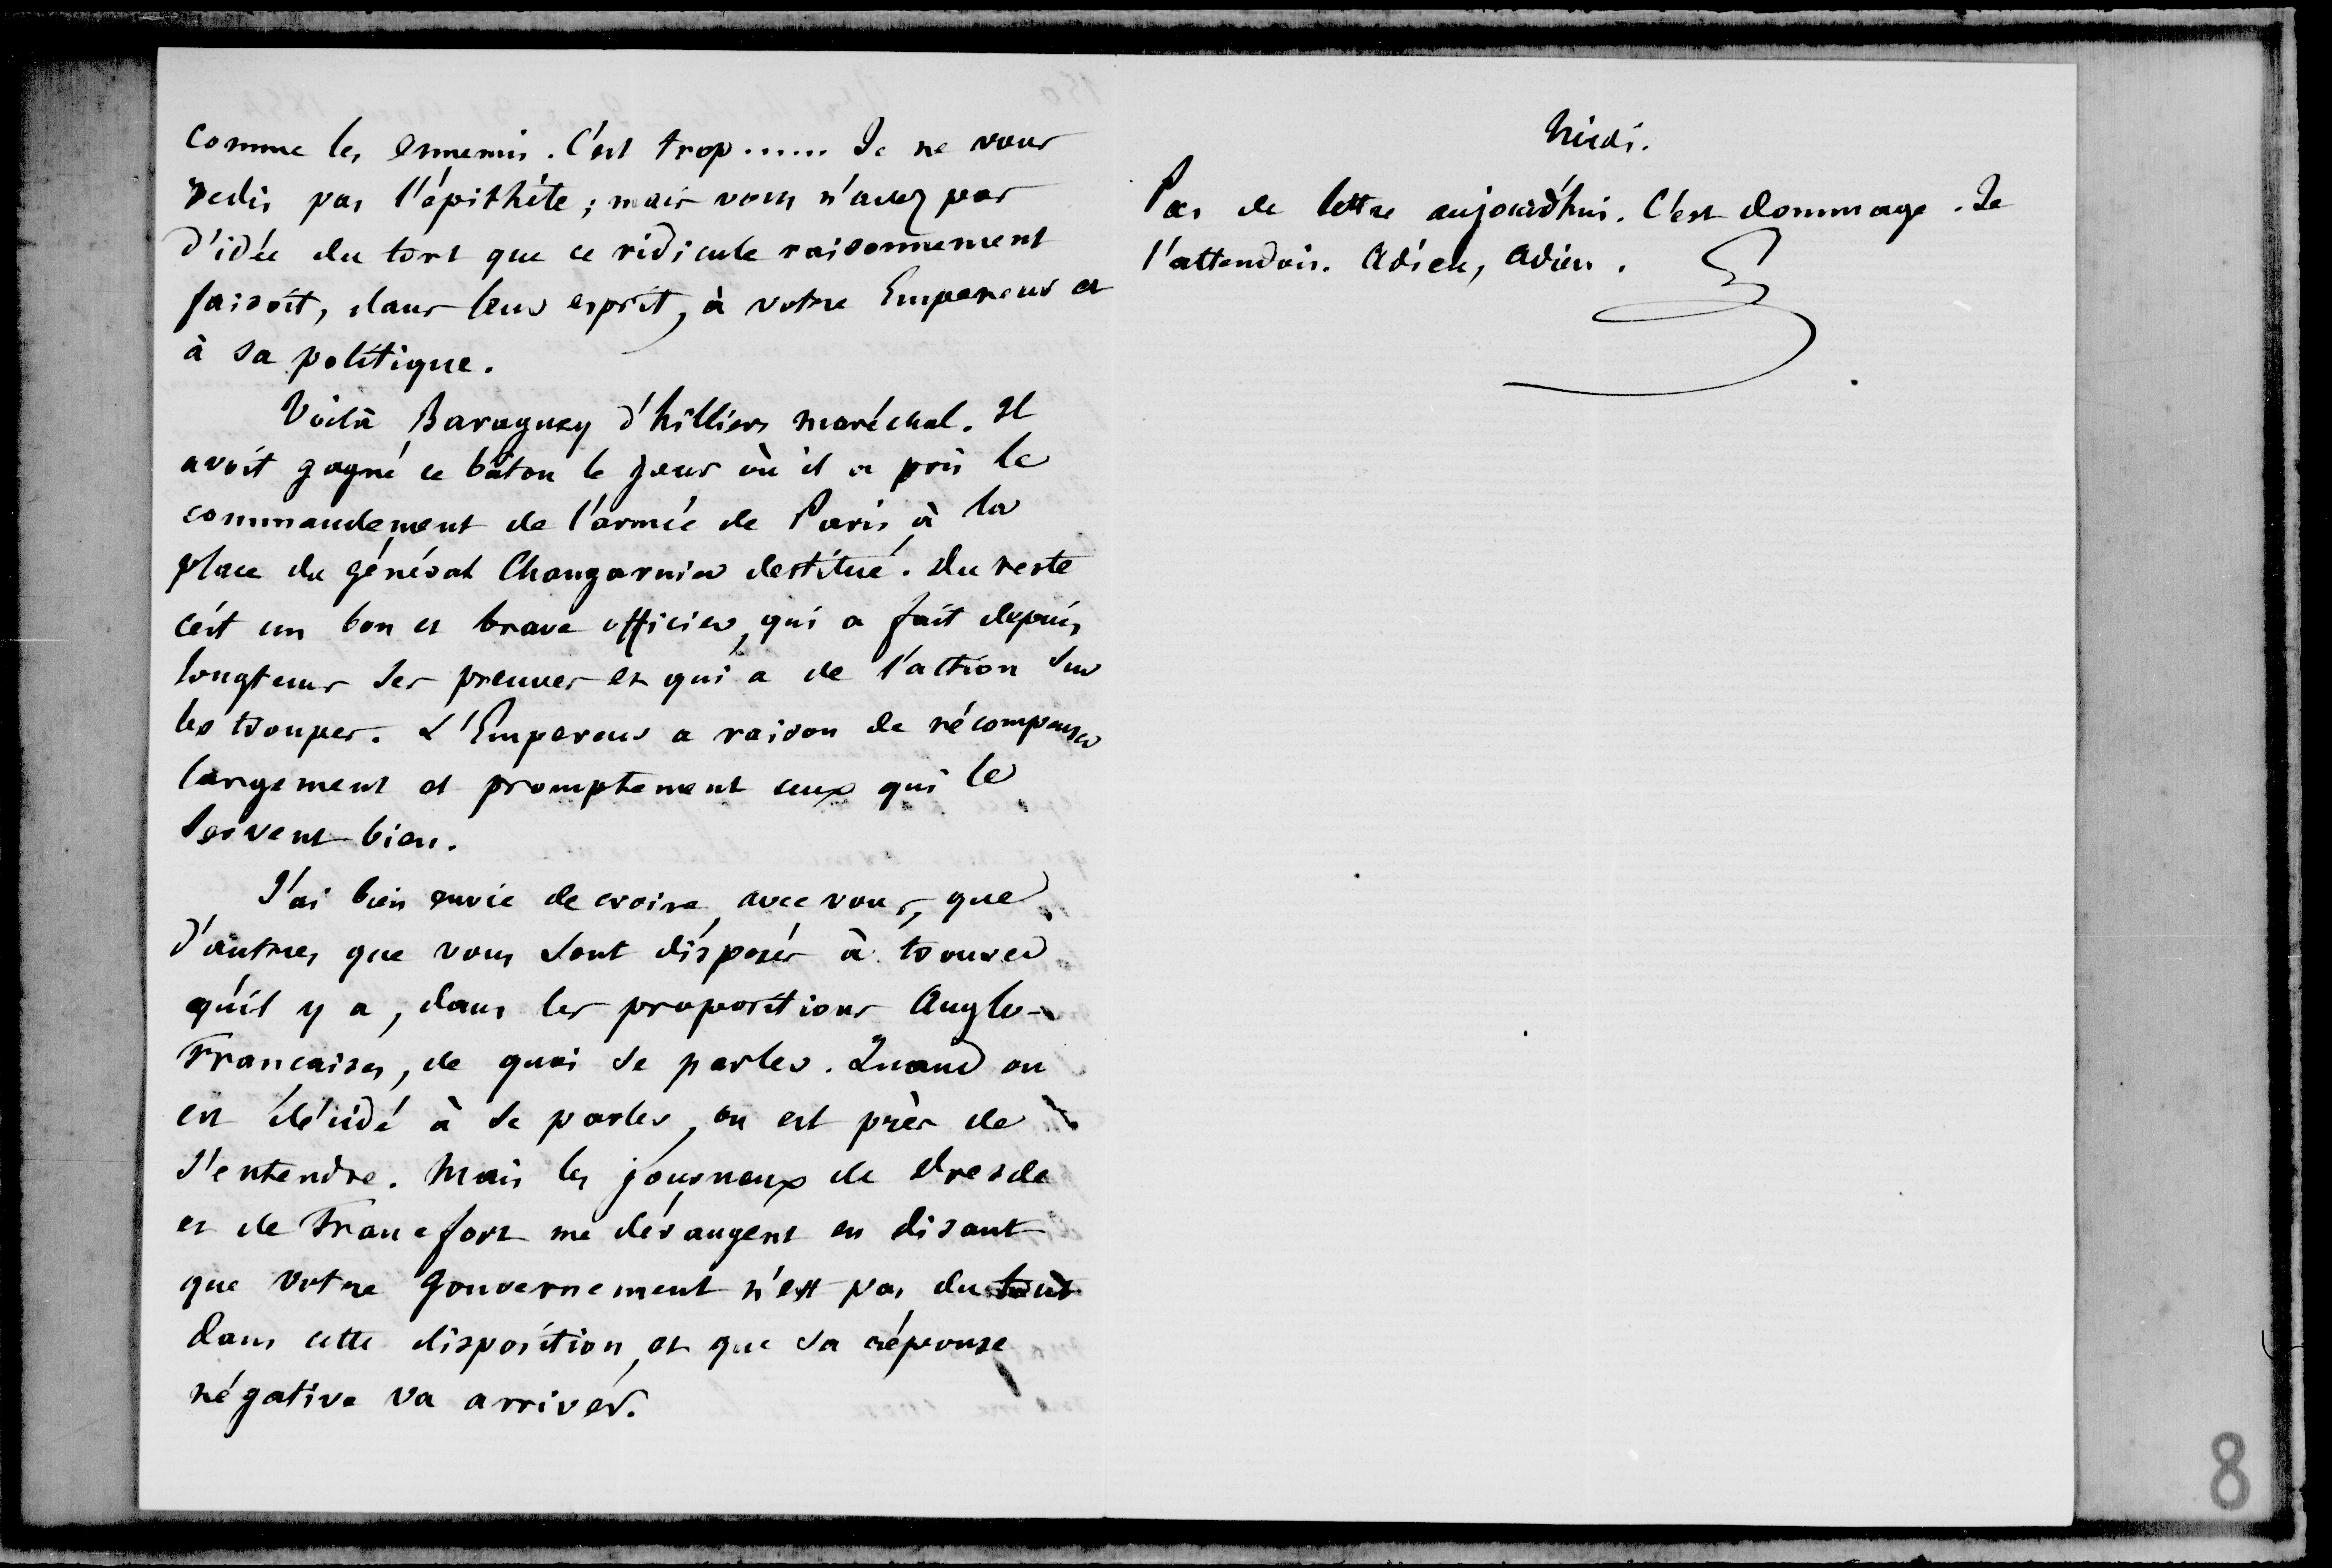 comme les ennemis. C'est trop...... Je ne vous
redis pas l'épithéte; mais vous n'avez pas
d'idée du tort que ce ridicule raisonnement
faisoit, dans leur esprit, à votre Empereur et
à sa politique.
Voilà Baraguey d'hilliers maréchal. Il
avoit gagné ce bâton le jour où il a pris le
commandement de l'armée de Paris, à la
place du général Changarnier destitué. Du reste
c'est un bon et brave officier, qui a fait depuis
longtems ses preuves et qui a de l'action sur
les troupes. L'Empereur a raison de récompenser
largement et promptement ceux qui le
servent bien.
J'ai bien envie de croire, avec vous, que
d'autres que vous sont disposés à trouver
qu'il y a, dans les propositions Anglo-
Françaises, de quoi se parler. Quand on
est décidé à se parler, on est près de
s'entendre. Mais les journaux de Dresde
et de Francfort me dérangent en disant
que votre gouvernement n'est pas du tout
dans cette disposition, et que sa réponse
négative va arriver.
Midi.
Pas de lettre aujourd'hui. C'est dommage. Je
l'attendois. Adieu, Adieu.
8